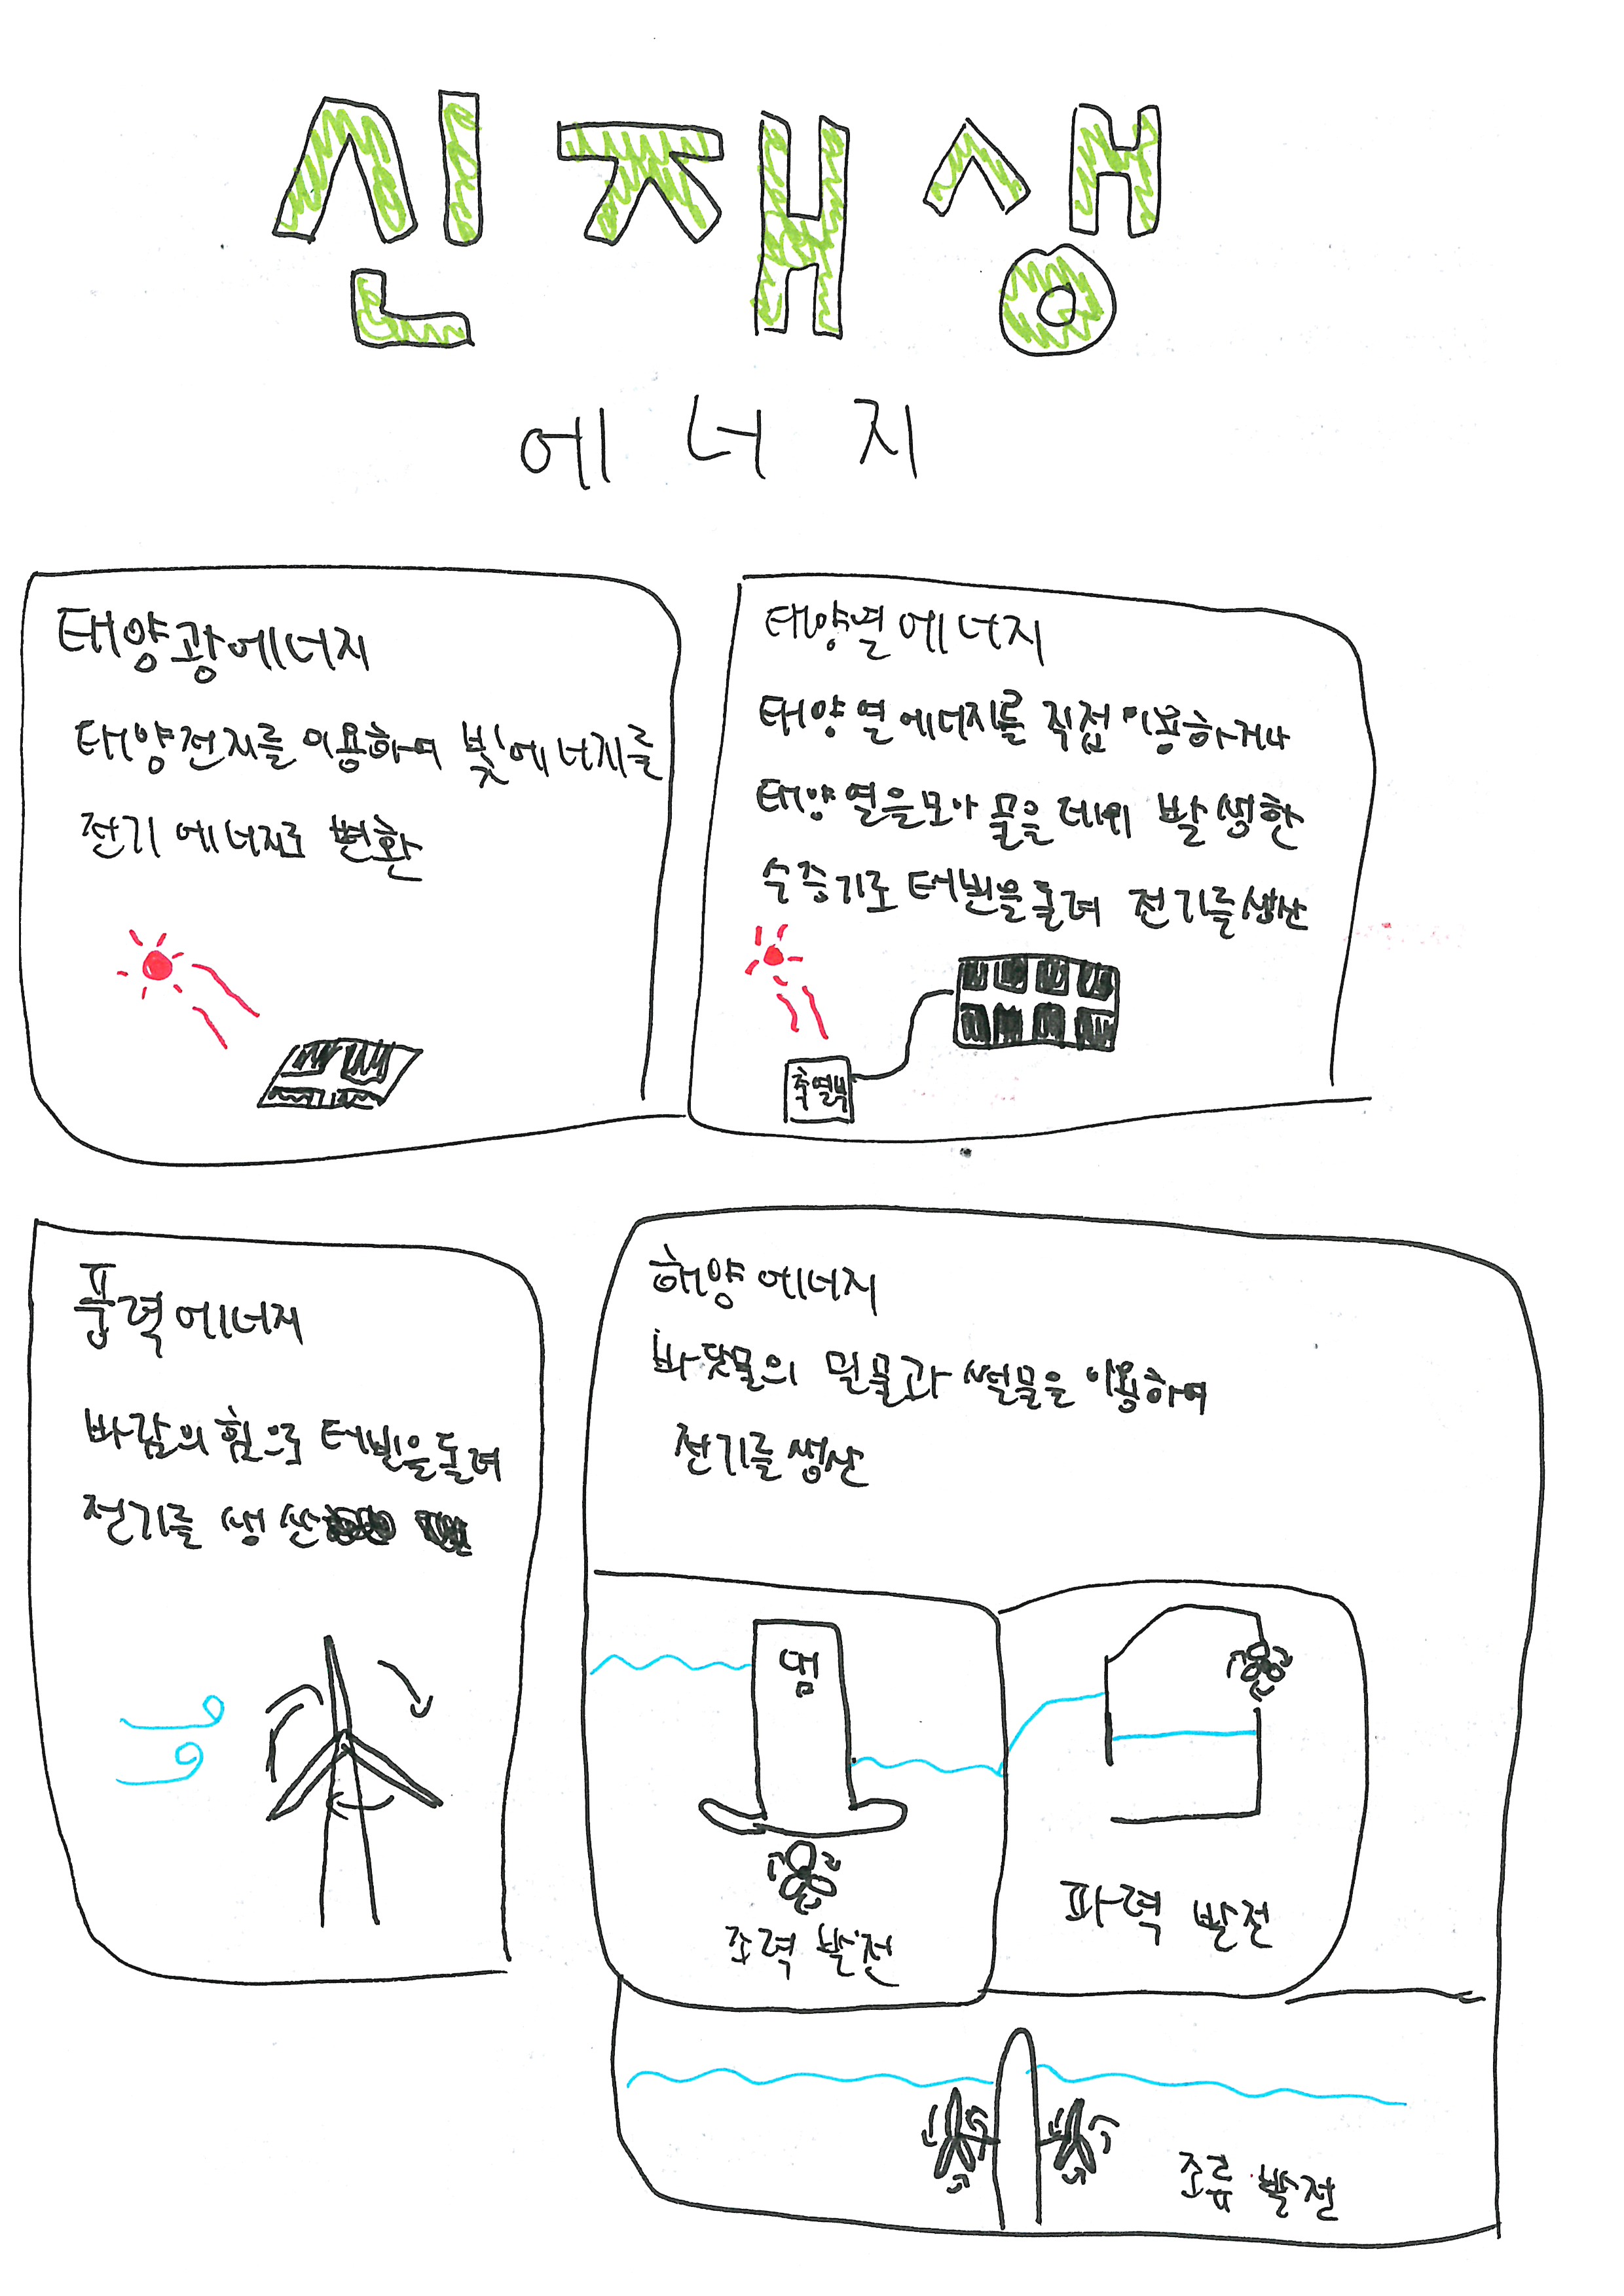 신재생
에너지
태양광에너지
태양전지를 이용하여 빛에너지를
전기 에너지로 변환
태양열에너지
태양열에너지를 직접 이용하거나
태양열을모아 물을 데워 발생한
수증기로 터빈을돌려 전기를생산
축열부
풍력에너지
바람의 힘으로 터빈을돌려
전기를 생산
해양에너지
바닷물의 밀물과 썰물을 이용하여
전기를생산
댐
조력 발전
파력 발전
조류 발전